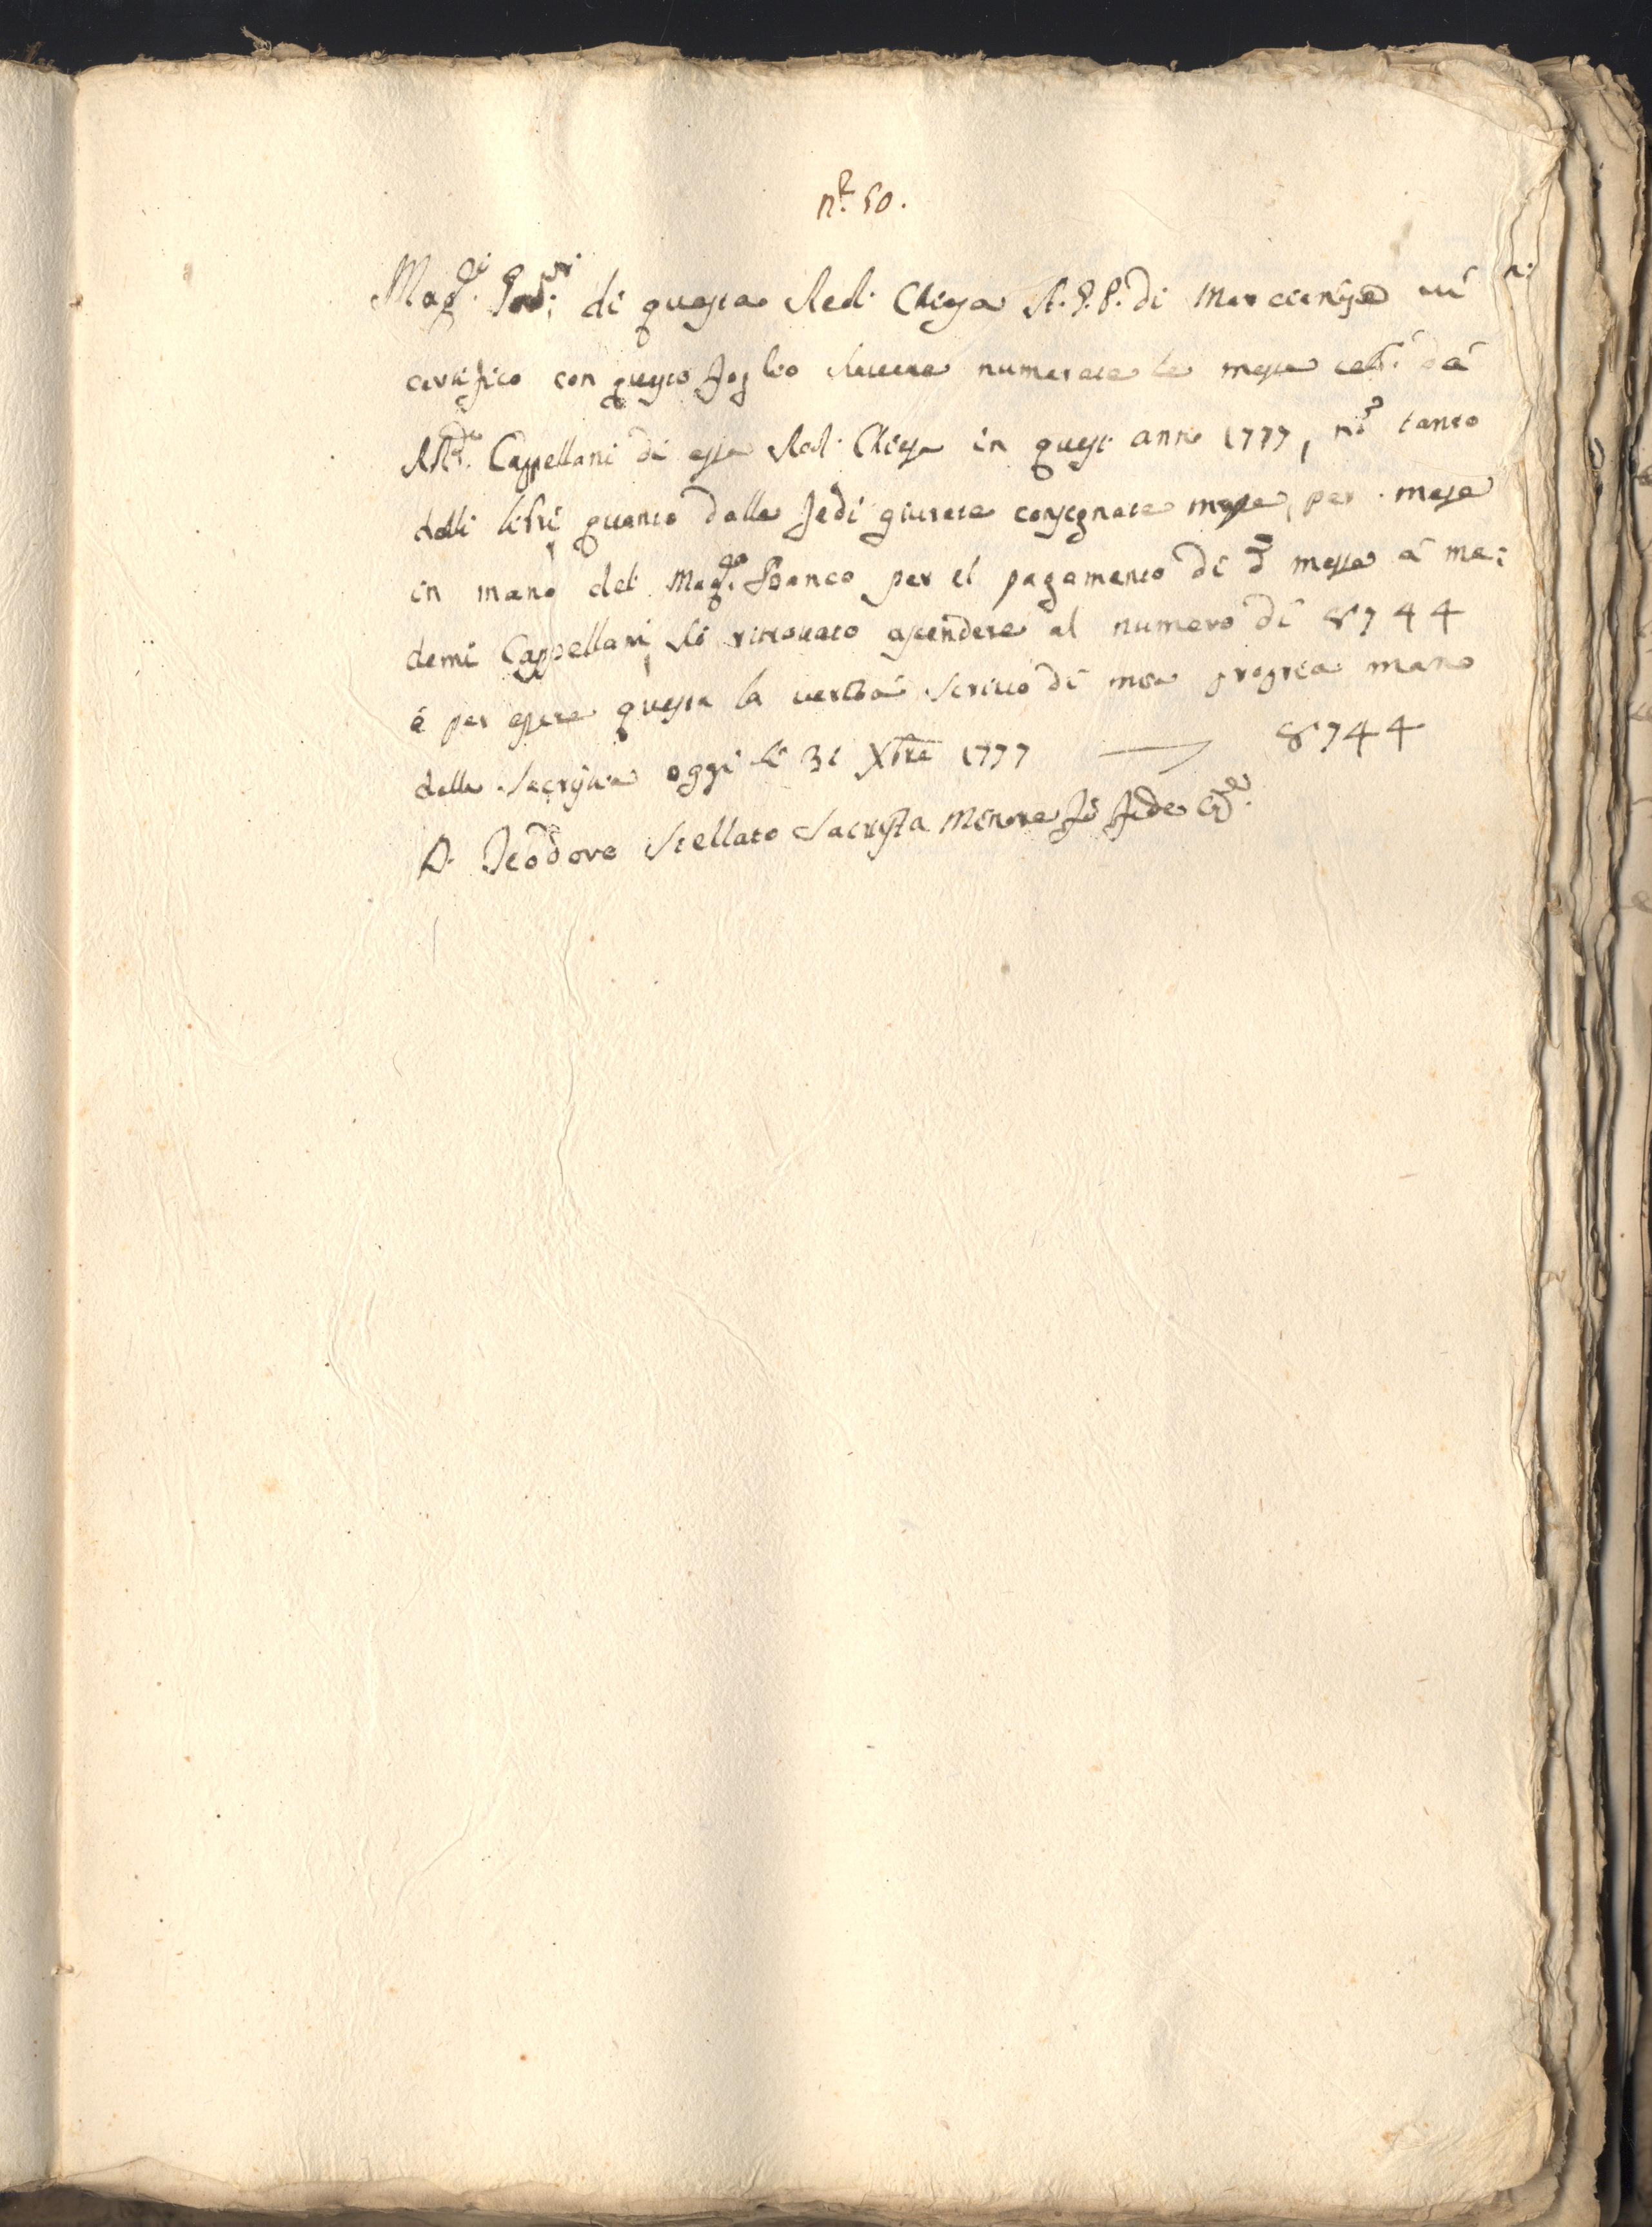 nº. 50.
Mag.ci Gov.ri di questa Real Chiesa A.G.P. di Marcianise vi
certifico con questo foglio havere numerate le messe cele. dà
RR.di Cappellani di essa Real Chiesa in quest anno 1777, tanto
dalli libri quanto dalle fedi giurate consegnate mese, per mese
in mano del Mag.co Banco per il pagamento di d.e messe à me:
demi Cappellani, hò ritrovato ascendere al numero di 8744
è per essere questa la verità hò scritto di mia propria mano
dalla Sacristia oggi li 31 Xbre 1777 — 8744
D. Teodoro Stellato Sacrista Minore fò fede